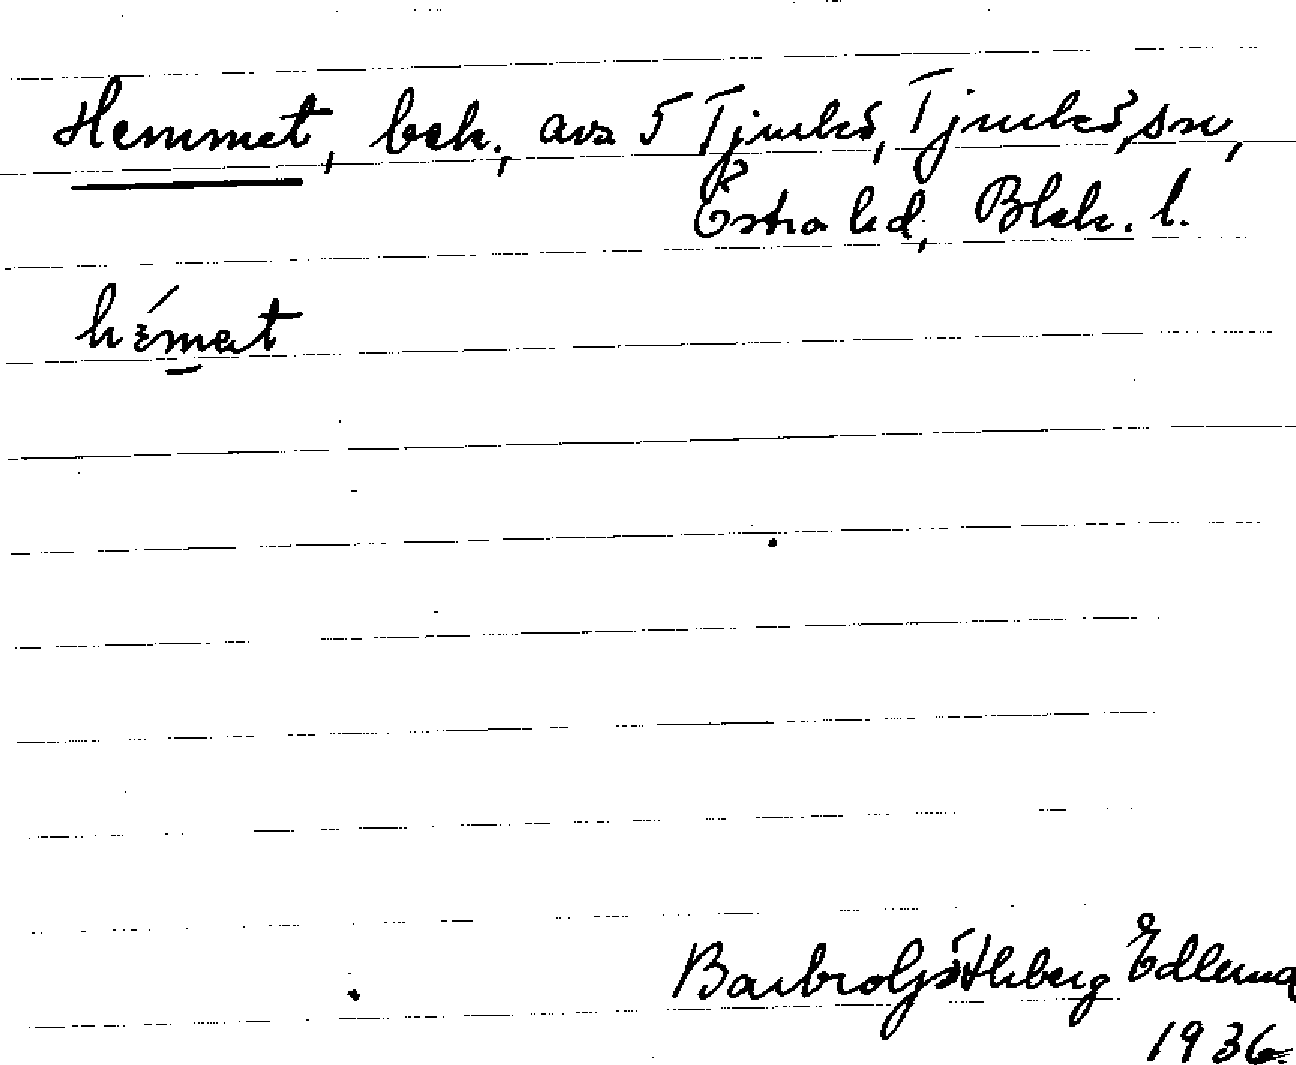 Hemmet, bek., avs 5 Tjurkö, Tjurkö sn,
Östra hd, Blek. l.
hémɛt
Barbro Götherberg Edlund
1936.